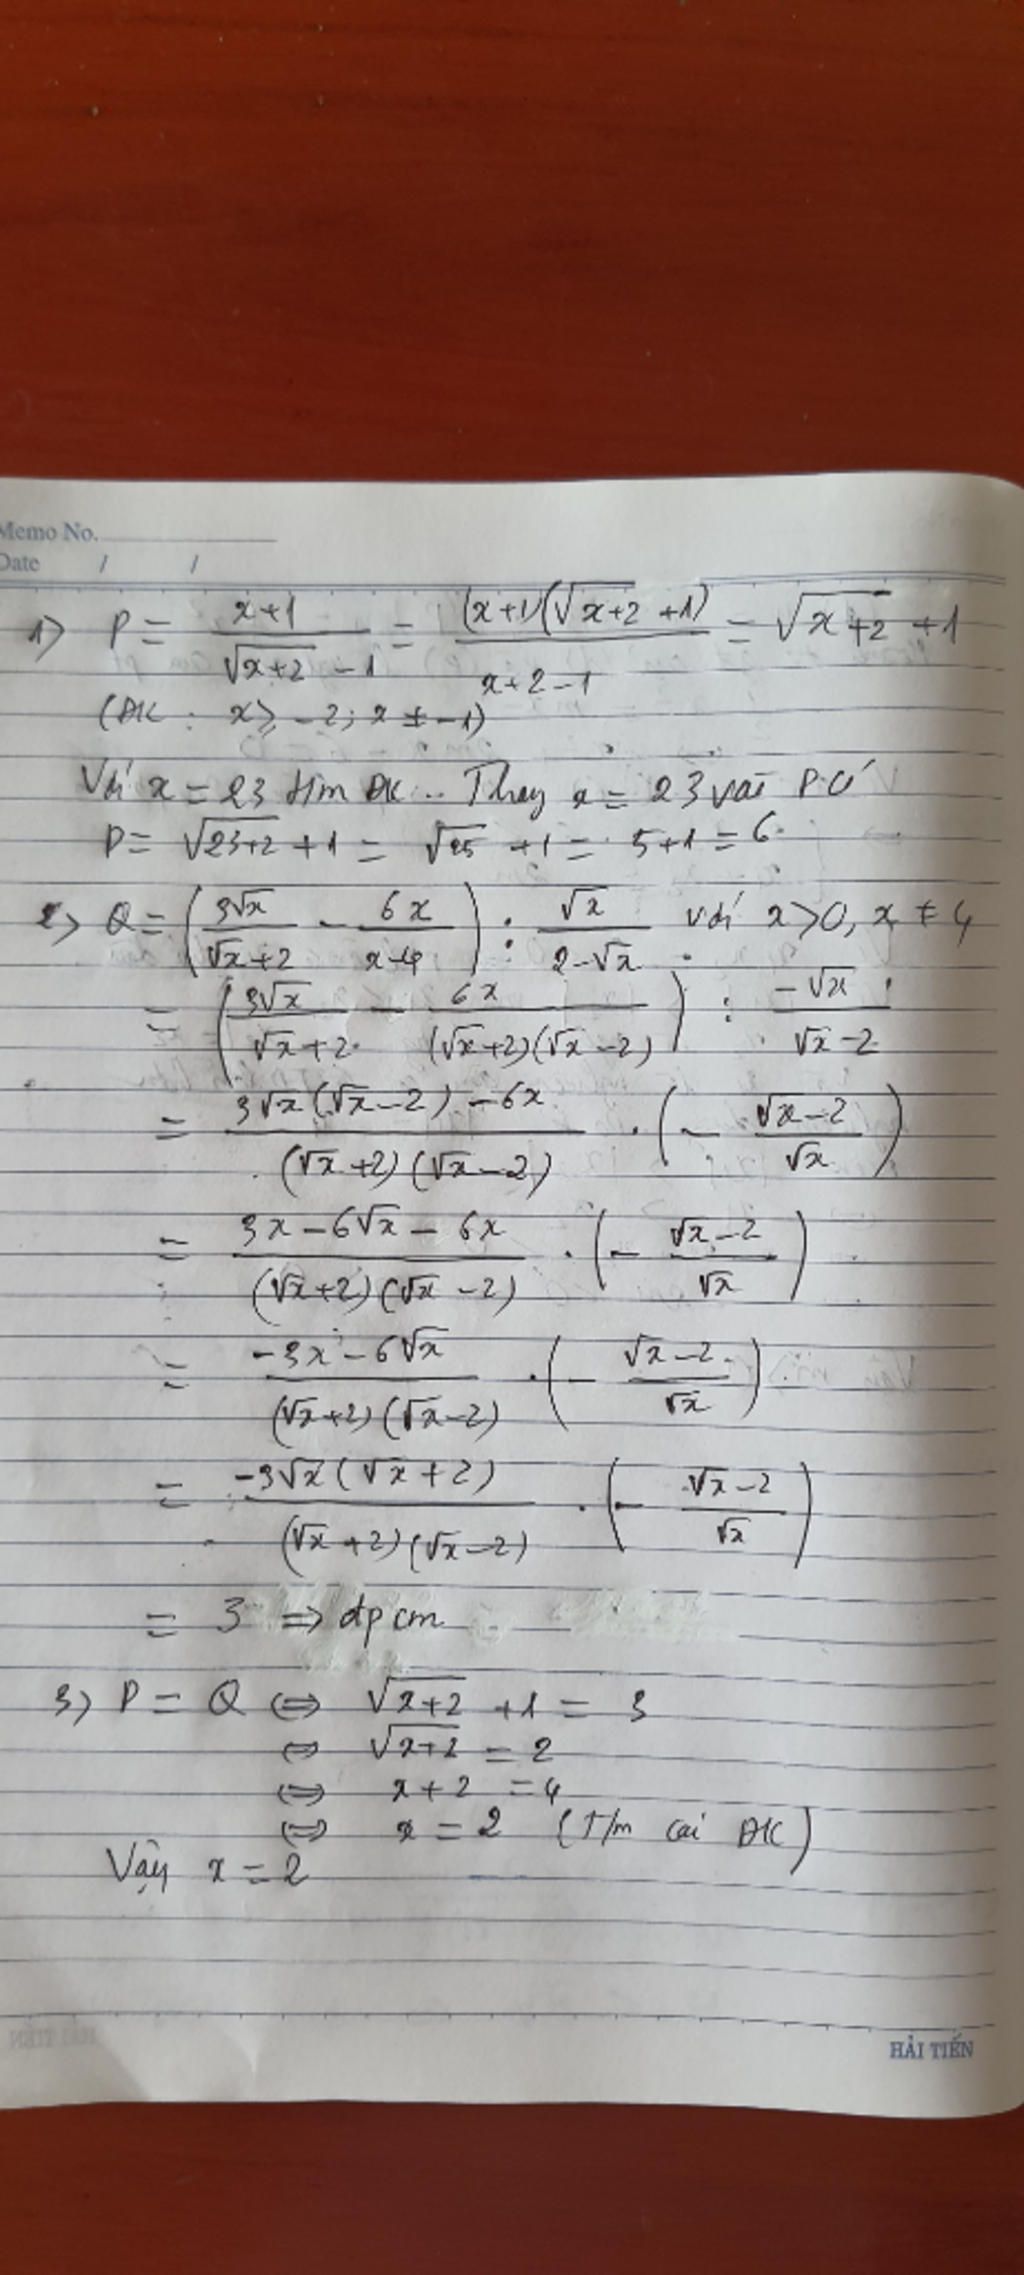 Memo No.
Date / /
1) P = (x+1)/(√(x+2) - 1) = ((x+1)(√(x+2) + 1))/(x+2-1) = √(x+2) + 1
(ĐK : x ≥ -2; x ≠ -1)
Với x = 23 t/m ĐK... Thay x = 23 vào P có
P = √(23+2) + 1 = √25 + 1 = 5+1 = 6.
2) Q = ((3√x)/(√x+2) - (6x)/(x-4)) : (√x)/(2-√x) với x>0, x ≠ 4
= ((3√x)/(√x+2) - (6x)/((√x+2)(√x-2))) : (-√x)/(√x-2)
= (3√x(√x-2) - 6x)/((√x+2)(√x-2)) · (- (√x-2)/(√x))
= (3x - 6√x - 6x)/((√x+2)(√x-2)) · (- (√x-2)/(√x))
= (-3x - 6√x)/((√x+2)(√x-2)) · (- (√x-2)/(√x))
= (-3√x(√x+2))/((√x+2)(√x-2)) · (- (√x-2)/(√x))
= 3 ⇒ đpcm
3) P = Q ⇔ √(x+2) + 1 = 3
⇔ √(x+2) = 2
⇔ x + 2 = 4
⇔ x = 2 (T/m các ĐK)
Vậy x = 2
HẢI TIẾN